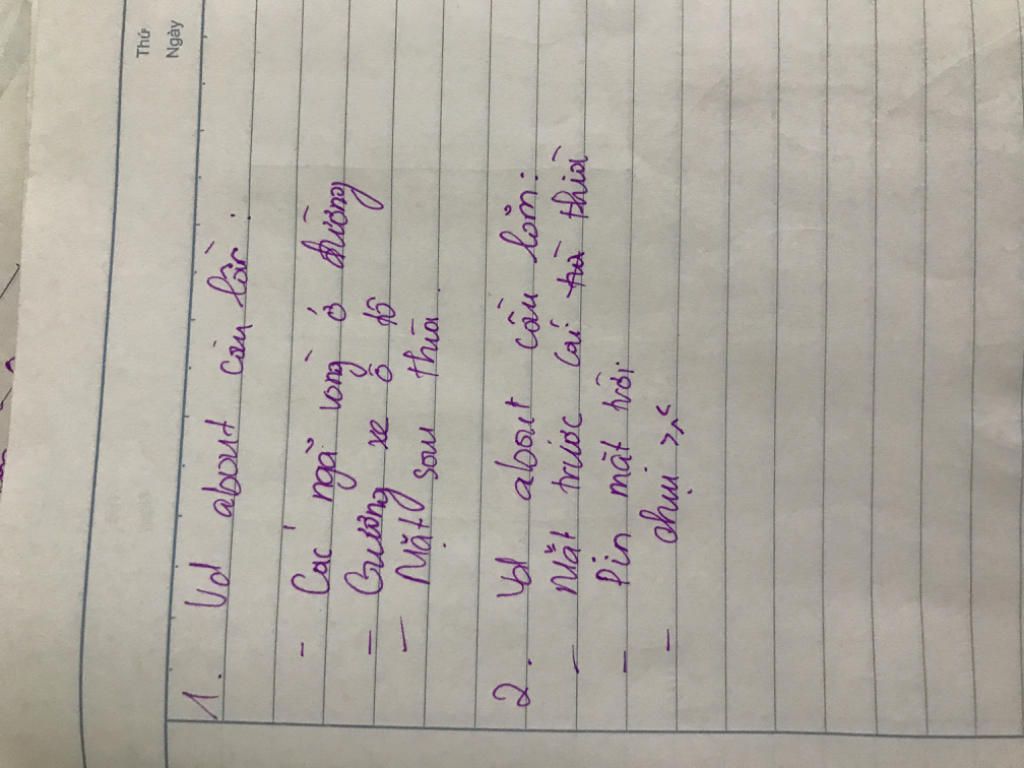 Thứ
Ngày
1. Vd about cầu lồi:
- Các ngã vòng ở đường
- Gương xe ô tô
- Mặt sau thìa.
2. Vd about cầu lõm:
- Mặt trước cái thìa
- Pin mặt trời.
-